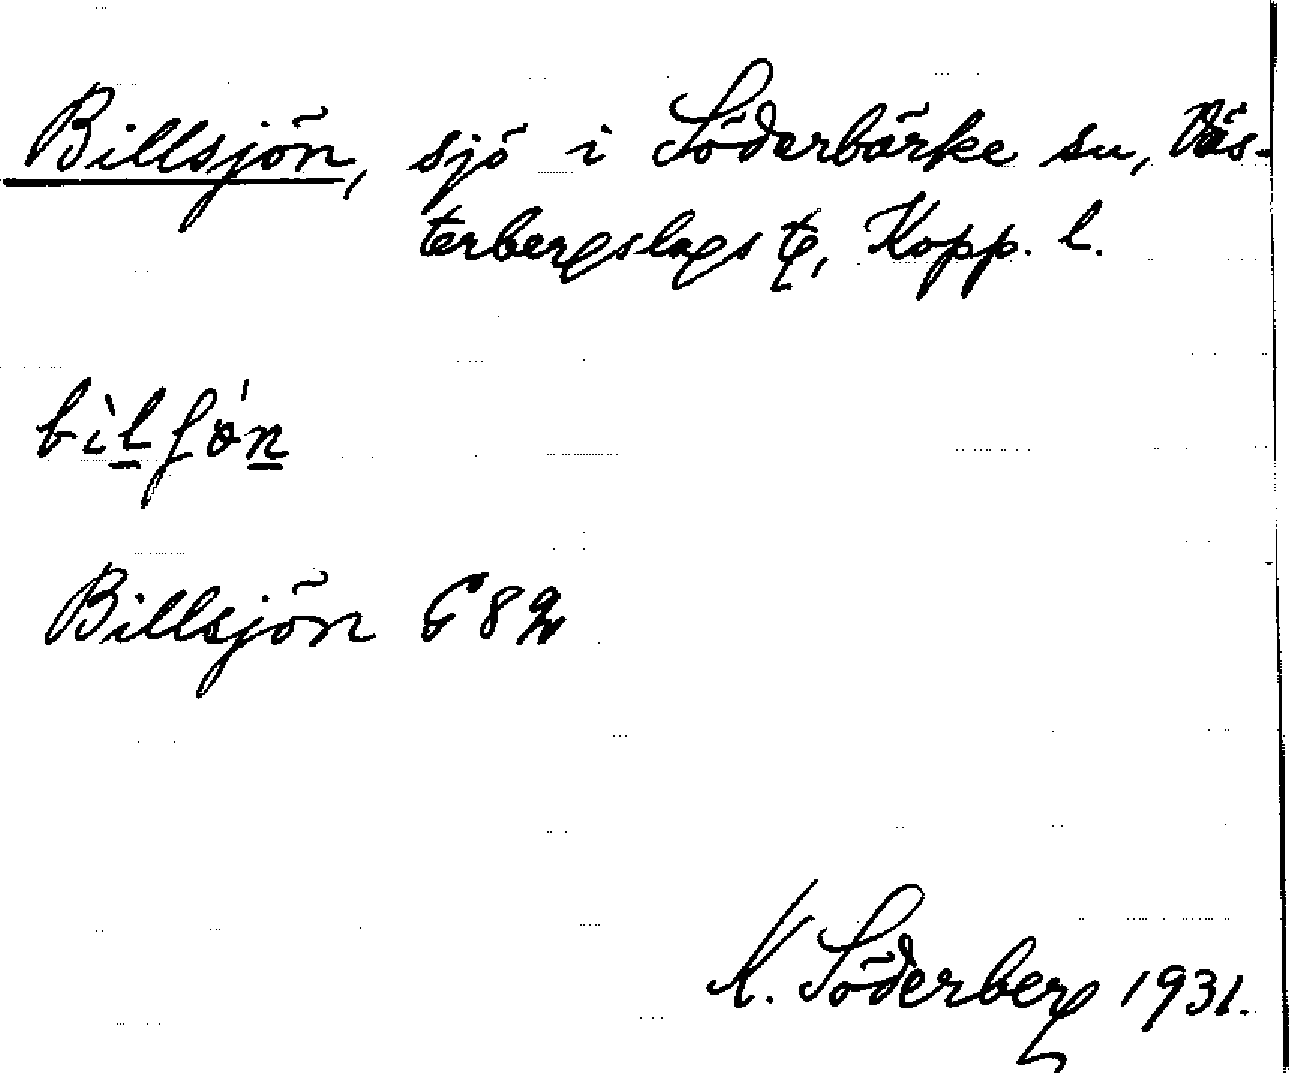 Billsjön, sjö i Söderbärke sn, Väs-
terbergslags tg, Kopp. l.
bìlʃǿn
Billsjön G 82
K. Söderberg 1931.